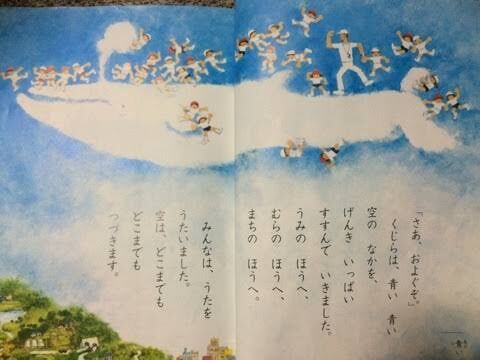 「さあ、およぐぞ。」
くじらは、青い 青い
空の なかを、
げんき いっぱい
すすんで いきました。
うみの ほうへ、
むらの ほうへ、
まちの ほうへ。
みんなは、うたを
うたいました。
空は、どこまでも
どこまでも
つづきます。